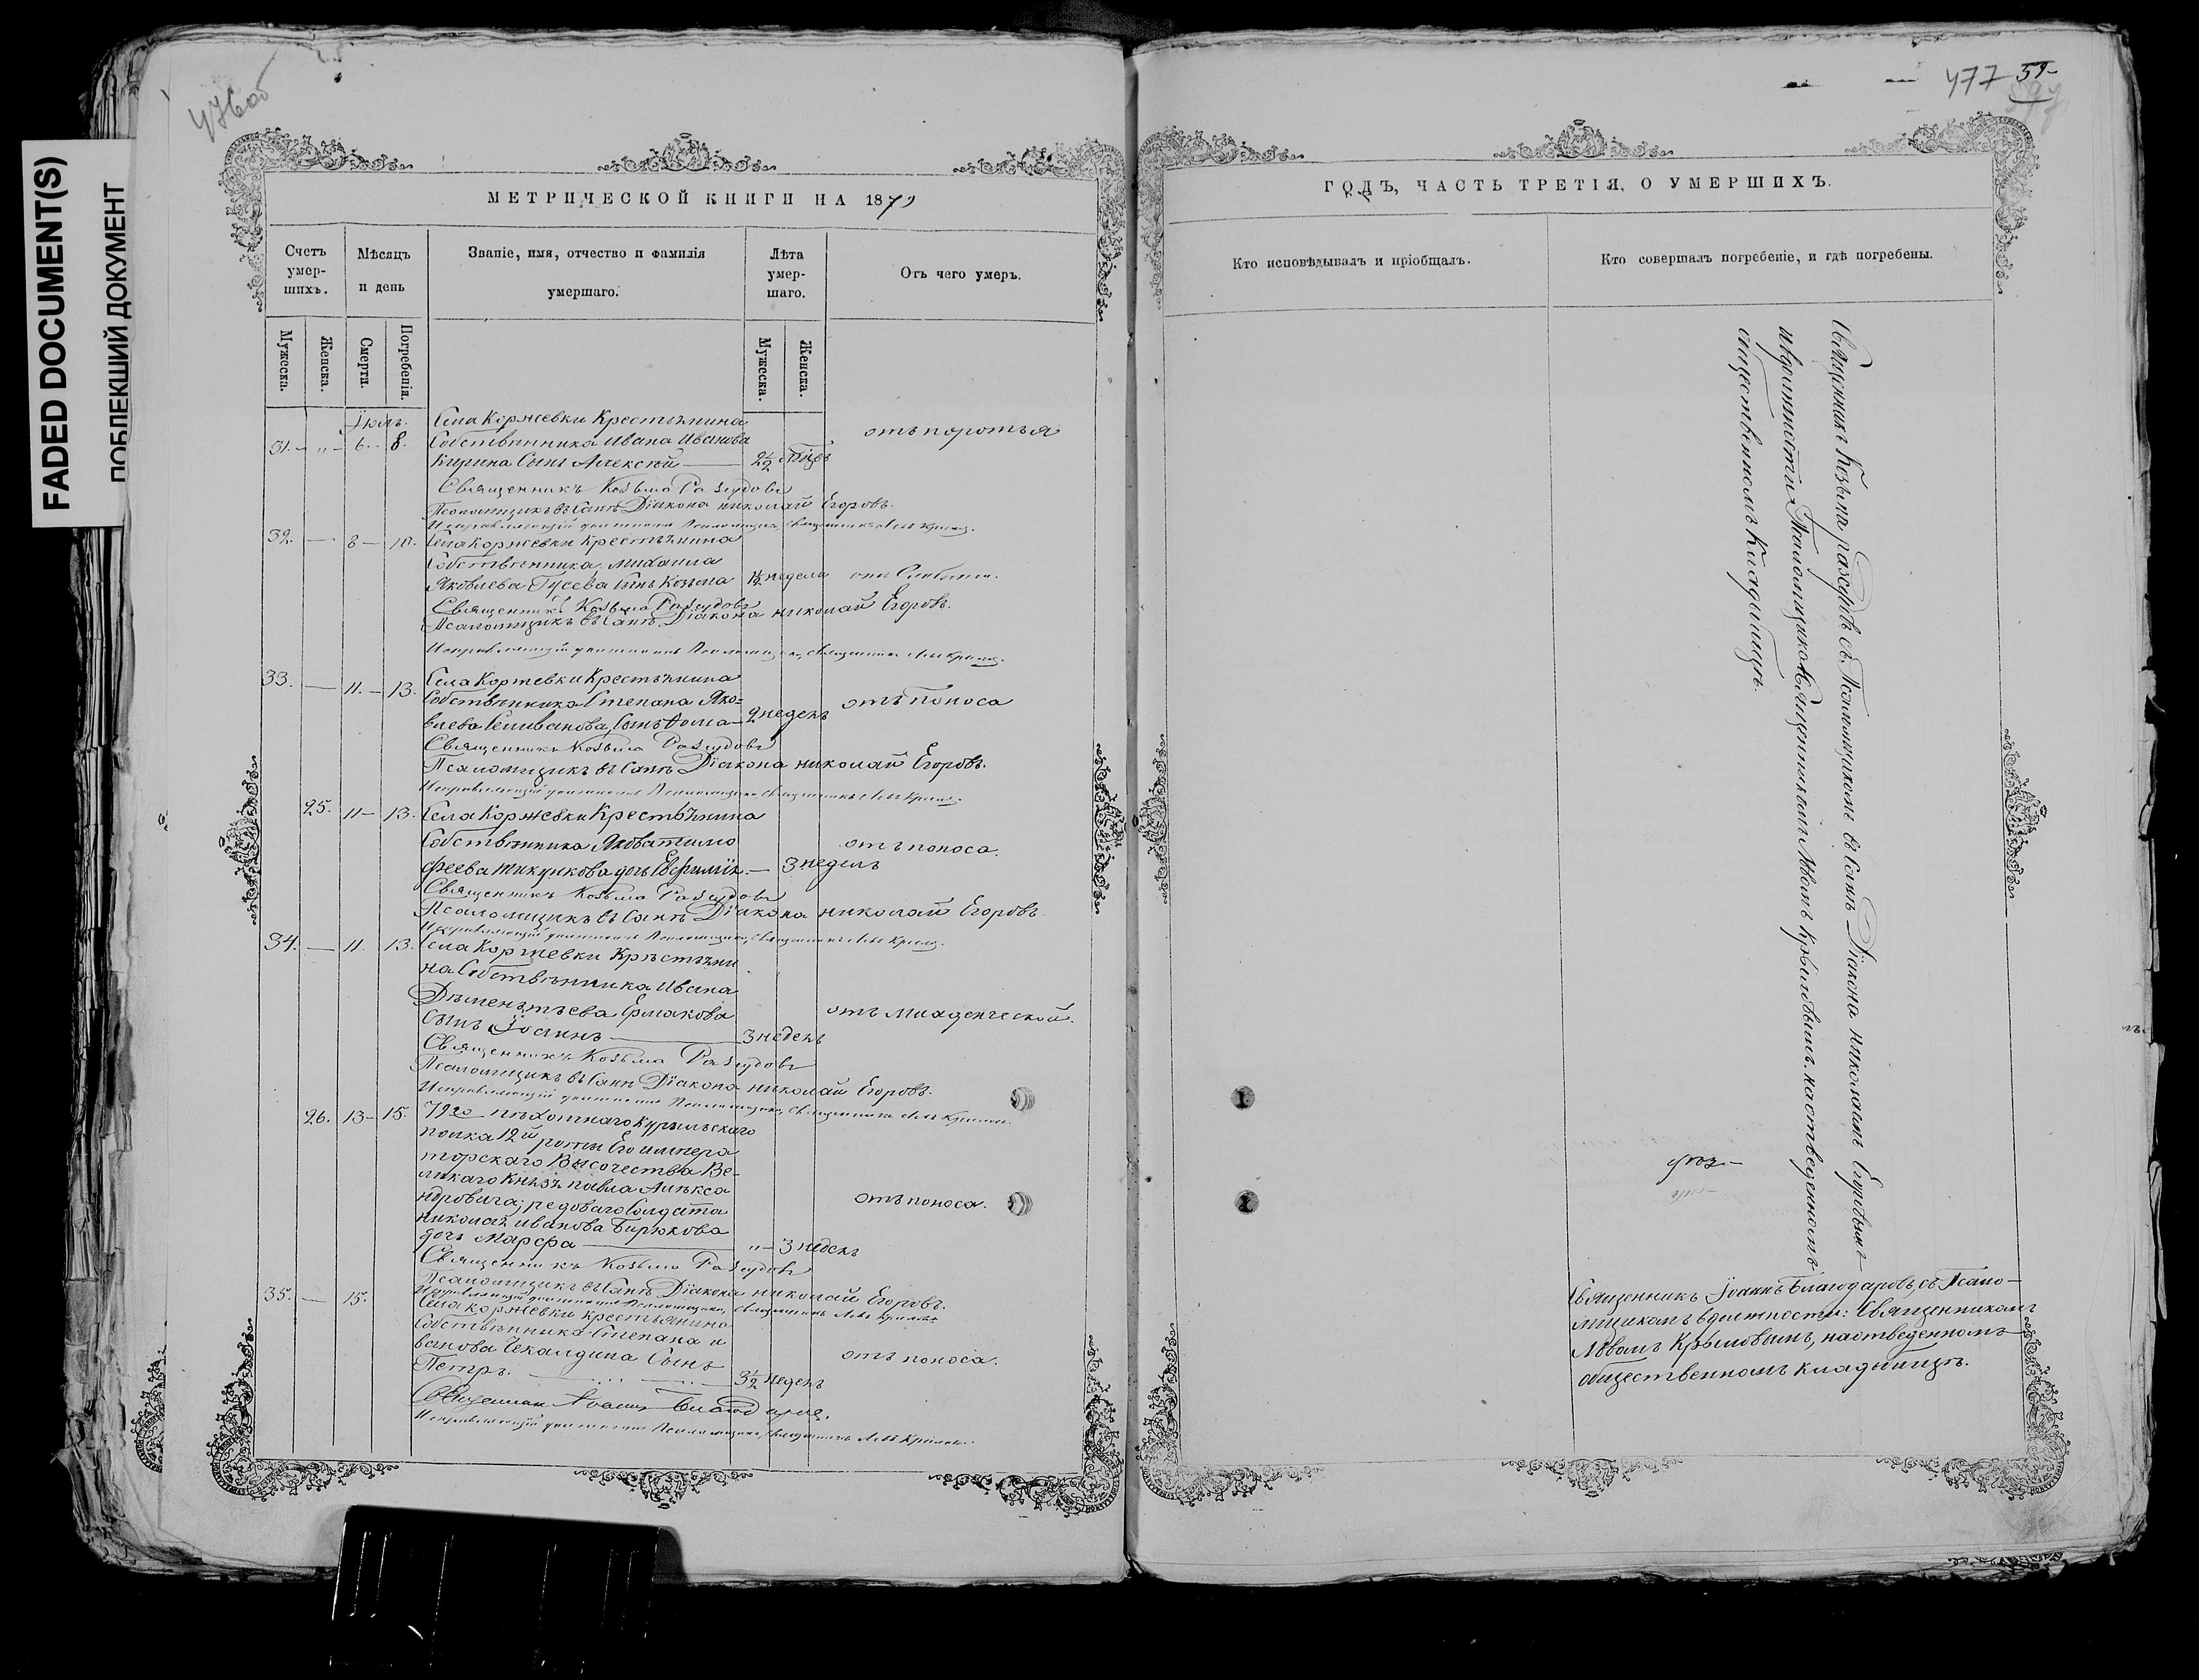 476об
FADED DOCUMENT(S)
ПОБЛЕКШИЙ ДОКУМЕНТ
МЕТРИЧЕСКОЙ КНИГИ НА 1879
Счетъ умер-шихъ.
Мѣсяцъ и день
Званіе, имя, отчество и фамилія умершаго.
Лѣта умер-шаго.
Отъ чего умеръ.
Мужеска.
Женска.
Смерти.
Погребенія.
Мужеска.
Женска.
Іюль.
Села Коржевки Крестьянина
31. — „ — 6. — 8. Собственника Ивана Иванова отъ
Кирина Сынъ Алексѣй — 2½
Священникъ Козьма Разудовъ
Псаломщикъ въ Санѣ Діакона Николай Егоровъ.
Исправляющій должность Псаломщика, Священникъ Левъ Крыловъ.
32. — 8 — 10. Села Коржевки Крестьянина
Собственника Михаила
Яковлева Гусева Сынъ Козьма 1½ недели отъ Слабости.
Священникъ Козьма Разудовъ
Псаломщикъ въ Санѣ Діакона Николай Егоровъ.
Исправляющій должность Псаломщика, Священникъ Левъ Крыловъ.
33. — 11. — 13. Села Коржевки Крестьянина
Собственника Степана Яко-
влева Селиванова, Сынъ Фома — 2 недель отъ поноса
Священникъ Козьма Разудовъ
Псаломщикъ въ Санѣ Діакона Николай Егоровъ.
Исправляющій должность Псаломщика, Священникъ Левъ Крыловъ.
25. 11 — 13. Села Коржевки Крестьянина
Собственника Якова Тимо отъ поноса.
феева Тикункова дочь Евфимія. — 3 недель
Священникъ Козьма Разудовъ
Псаломщикъ въ Санѣ Діакона Николай Егоровъ.
Исправляющій должность Псаломщика, Священникъ Левъ Крыловъ.
34. — 11. 13. Села Коржевки Крестьяни
на Собственника Ивана
Дементьева Ермакова отъ младенческой.
сынъ Іоаннъ — 3 недель
Священникъ Козьма Разудовъ
Псаломщикъ въ Санѣ Діакона Николай Егоровъ.
Исправляющій должность Псаломщика, Священникъ Левъ Крыловъ.
26. 13 — 15. 79го пѣхотнаго Куринскаго
полка 12й роты Его импера
торскаго Высочества Ве-
ликаго Князя Павла Алекса
ндровича, редоваго Солдата отъ поноса.
Николая Иванова Бирюкова
дочь Марфа — „ — 3 недель
Священникъ Козьма Разудовъ
Псаломщикъ въ Санѣ Діакона Николай Егоровъ.
Исправляющій должность Псаломщика, Священникъ Левъ Крыловъ
35. — 15. Села Коржевки крестьянина
Собственника Степана и
ванова Чекалдина Сынъ отъ поноса.
Петръ. — 3½ недель
Священникъ Іоаннъ Благодаровъ.
Исправляющій должность Псаломщика, Священникъ Левъ Крыловъ.
477 59
ГОДЪ, ЧАСТЬ ТРЕТІЯ, О УМЕРШИХЪ.
Кто исповѣдывалъ и пріобщалъ.
Кто совершалъ погребеніе, и гдѣ погребены.
Священникъ Козьма Разудовъ съ Псаломщикомъ въ Санѣ Діакона Николаемъ Егоровымъ
и въ должности Псаломщика Священникомъ Львомъ Крыловымъ, на отведенномъ
общественномъ Кладбищѣ.
Священникъ Іоаннъ Благодаровъ, съ Псало-
мщикомъ в должности: Священникомъ
Львомъ Крыловымъ, на отведенномъ
общественномъ кладбищѣ.